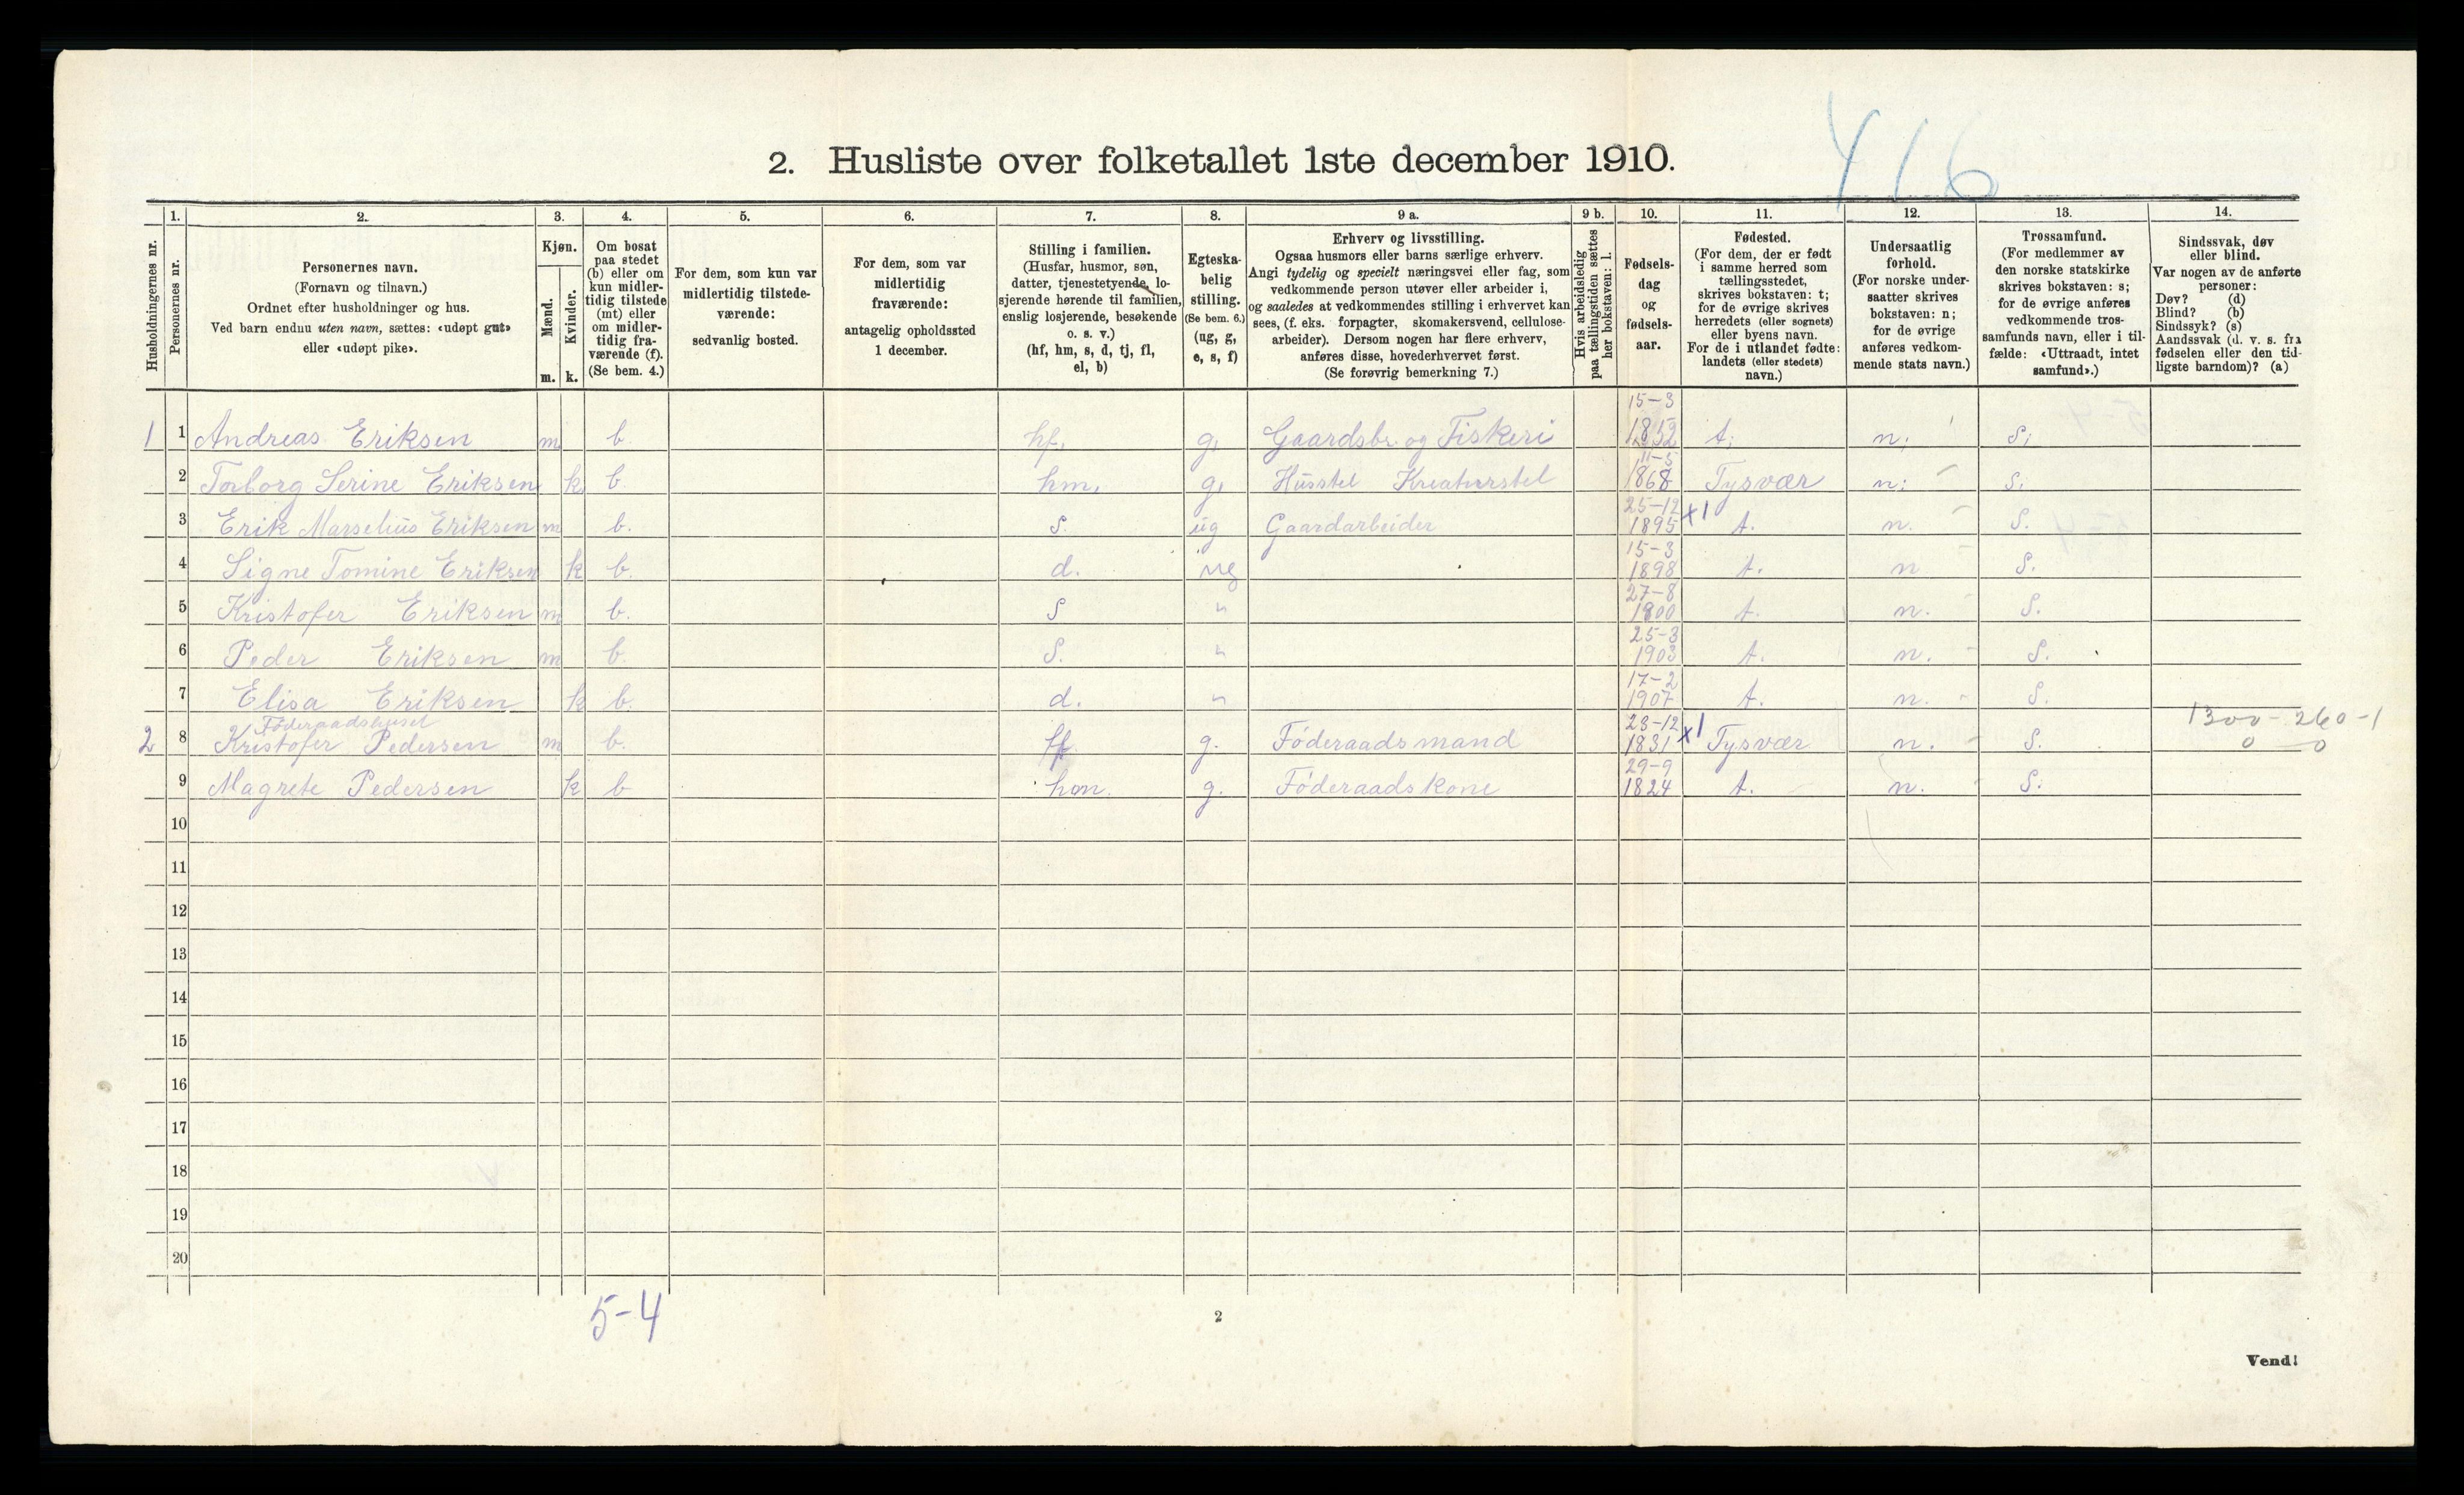 416
2. Husliste over folketallet 1ste december 1910.
1. 2. 3. 4. 5. 6. 7. 8. 9 a. 9 b. 10. 11. 12. 13. 14.
Husholdningernes nr.
Personernes nr.
Personernes navn.
(Fornavn og tilnavn.)
Ordnet efter husholdninger og hus.
Ved barn endnu uten navn, sættes: «udøpt gut»
eller «udøpt pike».
Kjøn.
Mænd.
m.
Kvinder.
k.
Om bosat
paa stedet
(b) eller om
kun midler-
tidig tilstede
(mt) eller
om midler-
tidig fra-
værende (f).
(Se bem. 4.)
For dem, som kun var
midlertidig tilstede-
værende:
sedvanlig bosted.
For dem, som var
midlertidig
fraværende:
antagelig opholdssted
1 december.
Stilling i familien.
(Husfar, husmor, søn,
datter, tjenestetyende, lo-
sjerende hørende til familien,
enslig losjerende, besøkende
o. s. v.)
(hf, hm, s, d, tj, fl,
el, b)
Egteska-
belig
stilling.
(Se bem. 6.)
(ug, g,
e, s, f)
Erhverv og livsstilling.
Ogsaa husmors eller barns særlige erhverv.
Angi tydelig og specielt næringsvei eller fag, som
vedkommende person utøver eller arbeider i,
og saaledes at vedkommendes stilling i erhvervet kan
sees, (f. eks. forpagter, skomakersvend, cellulose-
arbeider). Dersom nogen har flere erhverv,
anføres disse, hovederhvervet først.
(Se forøvrig bemerkning 7.)
Hvis arbeidsledig
paa tællingstiden sættes
her bokstaven: l.
Fødsels-
dag
og
fødsels-
aar.
Fødested.
(For dem, der er født
i samme herred som
tællingsstedet,
skrives bokstaven: t;
for de øvrige skrives
herredets (eller sognets)
eller byens navn.
For de i utlandet fødte:
landets (eller stedets)
navn.)
Undersaatlig
forhold.
(For norske under-
saatter skrives
bokstaven: n;
for de øvrige
anføres vedkom-
mende stats navn.)
Trossamfund.
(For medlemmer av
den norske statskirke
skrives bokstaven: s;
for de øvrige anføres
vedkommende tros-
samfunds navn, eller i til-
fælde: «Uttraadt, intet
samfund».)
Sindssvak, døv
eller blind.
Var nogen av de anførte
personer:
Døv? (d)
Blind? (b)
Sindssyk? (s)
Aandssvak (d. v. s. fra
fødselen eller den tid-
ligste barndom)? (a)
1 1 Andreas Eriksen m b hf. g. Gaardsbr. og Fiskeri 15-3 1852 t. n. s.
2 Torborg Serine Eriksen k b hm. g. Husstel Kreaturstel 11-5 1868 Tysvær n. s.
3 Erik Marselius Eriksen m b. s. ug Gaardarbeider 25-12 1895 x1 t. n. s.
4 Signe Tomine Eriksen k b. d. ug 15-3 1898 t. n s.
5 Kristofer Eriksen m b. s " 27-8 1900 t. n. s.
6 Peder Eriksen m b. s. " 25-3 1903 t. n. s.
7 Elisa Eriksen k b. d. " 17-2 1907 t. n. s.
Føderaadshuset
2 8 Kristofer Pedersen m b. hf g. Føderaadsmand 23-12 1831 x1 Tysvær n. s. 1300-260-1
0 0
9 Magrete Pedersen k b hm. g. Føderaadskone 29-9 1824 t. n. s.
10
11
12
13
14
15
16
17
18
19
20
5-4
2
Vend!